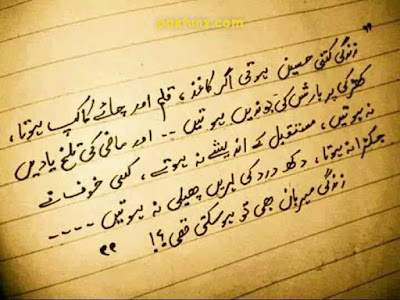 pakfunx.com
"
زندگی کتنی حسین ہوتی اگر کاغذ، قلم اور چائے کا کپ ہوتا،
کھڑکی پر بارش کی بوندیں ہوتیں -- اور ماضی کی تلخ یادیں
نہ ہوتیں، مستقبل کے اندیشے نہ ہوتے، کسی خوف نے
جکڑا نہ ہوتا، دکھ درد کی لہریں پھیلی نہ ہوتیں ----
زندگی مہرباں بھی تو ہو سکتی تھی؟!
"